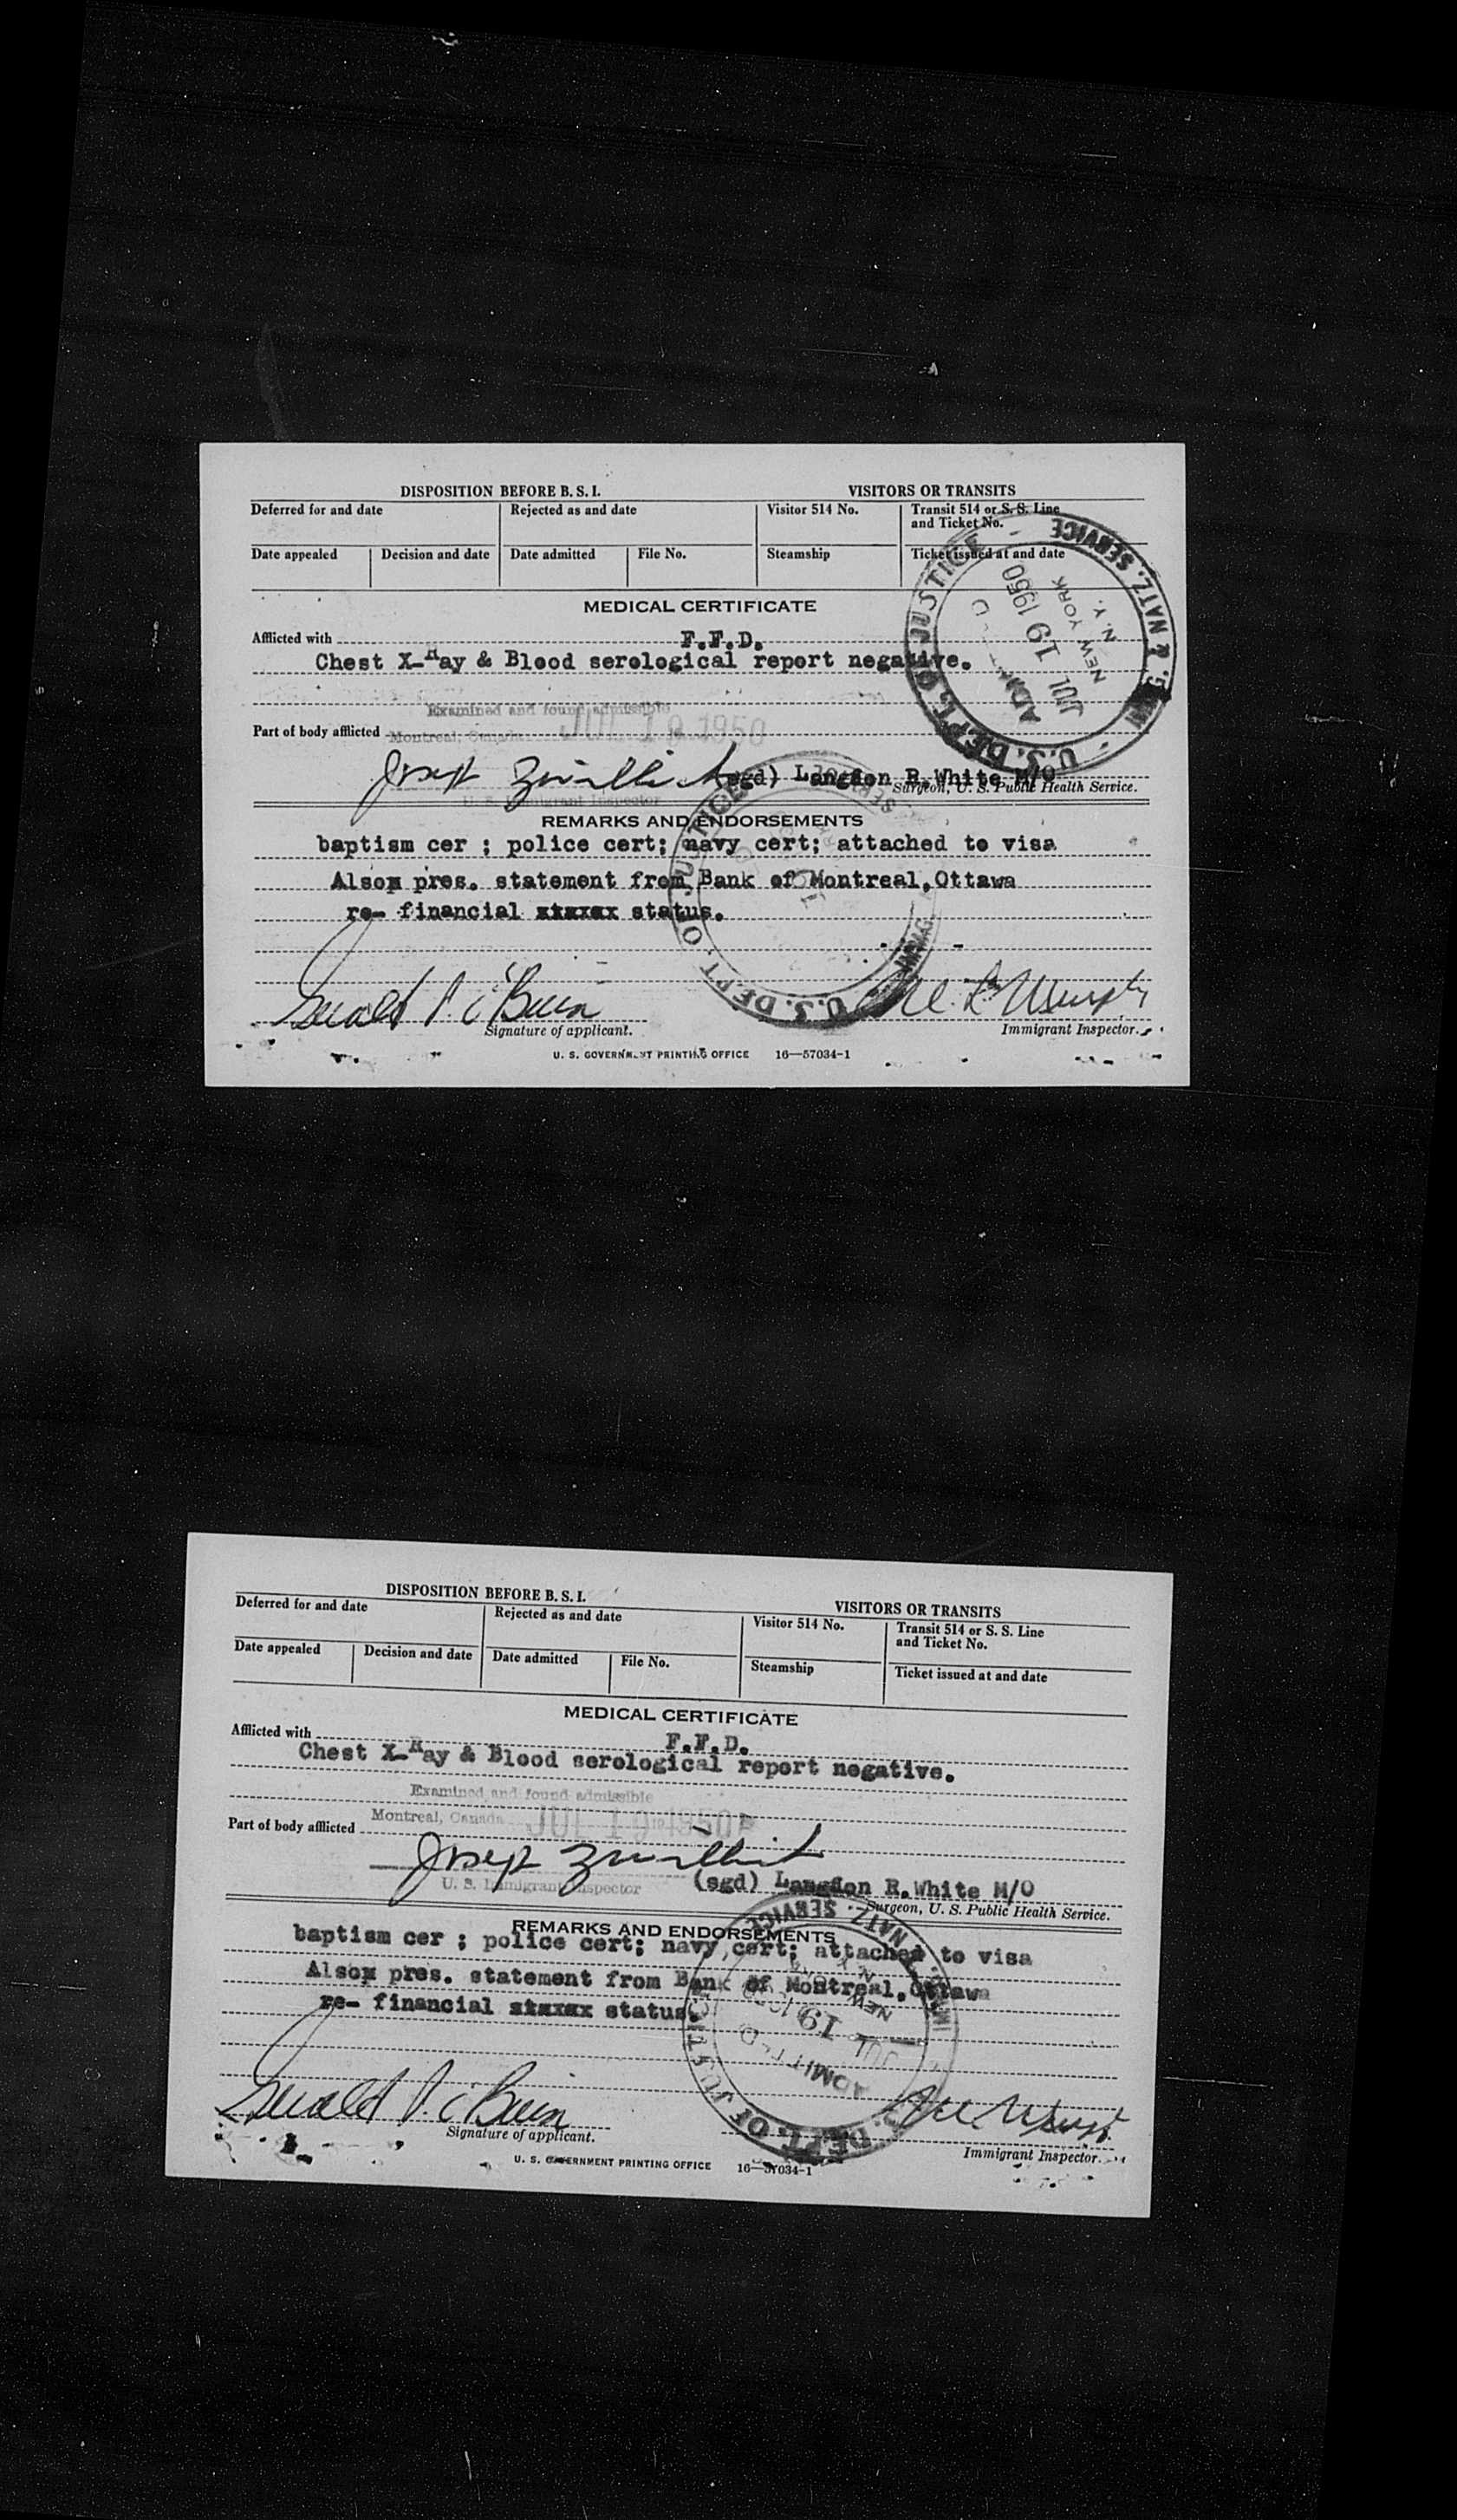 DISPOSITION BEFORE B. S. I. VISITORS OR TRANSITS
Deferred for and date Rejected as and date Visitor 514 No. Transit 514 or S. S. Line and Ticket No.
Date appealed Decision and date Date admitted File No. Steamship Ticket issued at and date
MEDICAL CERTIFICATE
Afflicted with F.F.D.
Chest X-Ray & Blood serological report negative.
Examined and found admissible
Part of body afflicted Montreal, Canada JUL 19 1950
Joseph
(sgd) Langdon R.White M/O
U. S. Immigrant Inspector Surgeon, U. S. Public Health Service.
REMARKS AND ENDORSEMENTS
baptism cer ; police cert; navy cert; attached to visa
Alsom pres. statement from Bank of Montreal,Ottawa
re- financial status.
Gerald P. O'Brien
Signature of applicant. Immigrant Inspector.
U. S. GOVERNMENT PRINTING OFFICE 16—57034-1
U.S. DEPT. OF JUSTICE
NATZ. SERVICE
JUL 19 1950
NEW YORK
N. Y.
U.S. DEPT. OF JUSTICE
DISPOSITION BEFORE B. S. I. VISITORS OR TRANSITS
Deferred for and date Rejected as and date Visitor 514 No. Transit 514 or S. S. Line and Ticket No.
Date appealed Decision and date Date admitted File No. Steamship Ticket issued at and date
MEDICAL CERTIFICATE
Afflicted with F.F.D.
Chest X-Ray & Blood serological report negative.
Examined and found admissible
Montreal, Canada JUL 19 1950
Part of body afflicted
Joseph
U. S. Immigrant Inspector (sgd) Langdon R.White M/O
Surgeon, U. S. Public Health Service.
REMARKS AND ENDORSEMENTS
baptism cer ; police cert; navy cert; attached to visa
Alsom pres. statement from Bank of Montreal,Ottawa
re- financial status.
Gerald P. O'Brien
Signature of applicant. Immigrant Inspector.
U. S. GOVERNMENT PRINTING OFFICE 16—57034-1
DEPT. OF JUSTICE
NATZ. SERVICE
ADMITTED
JUL 19
NEW